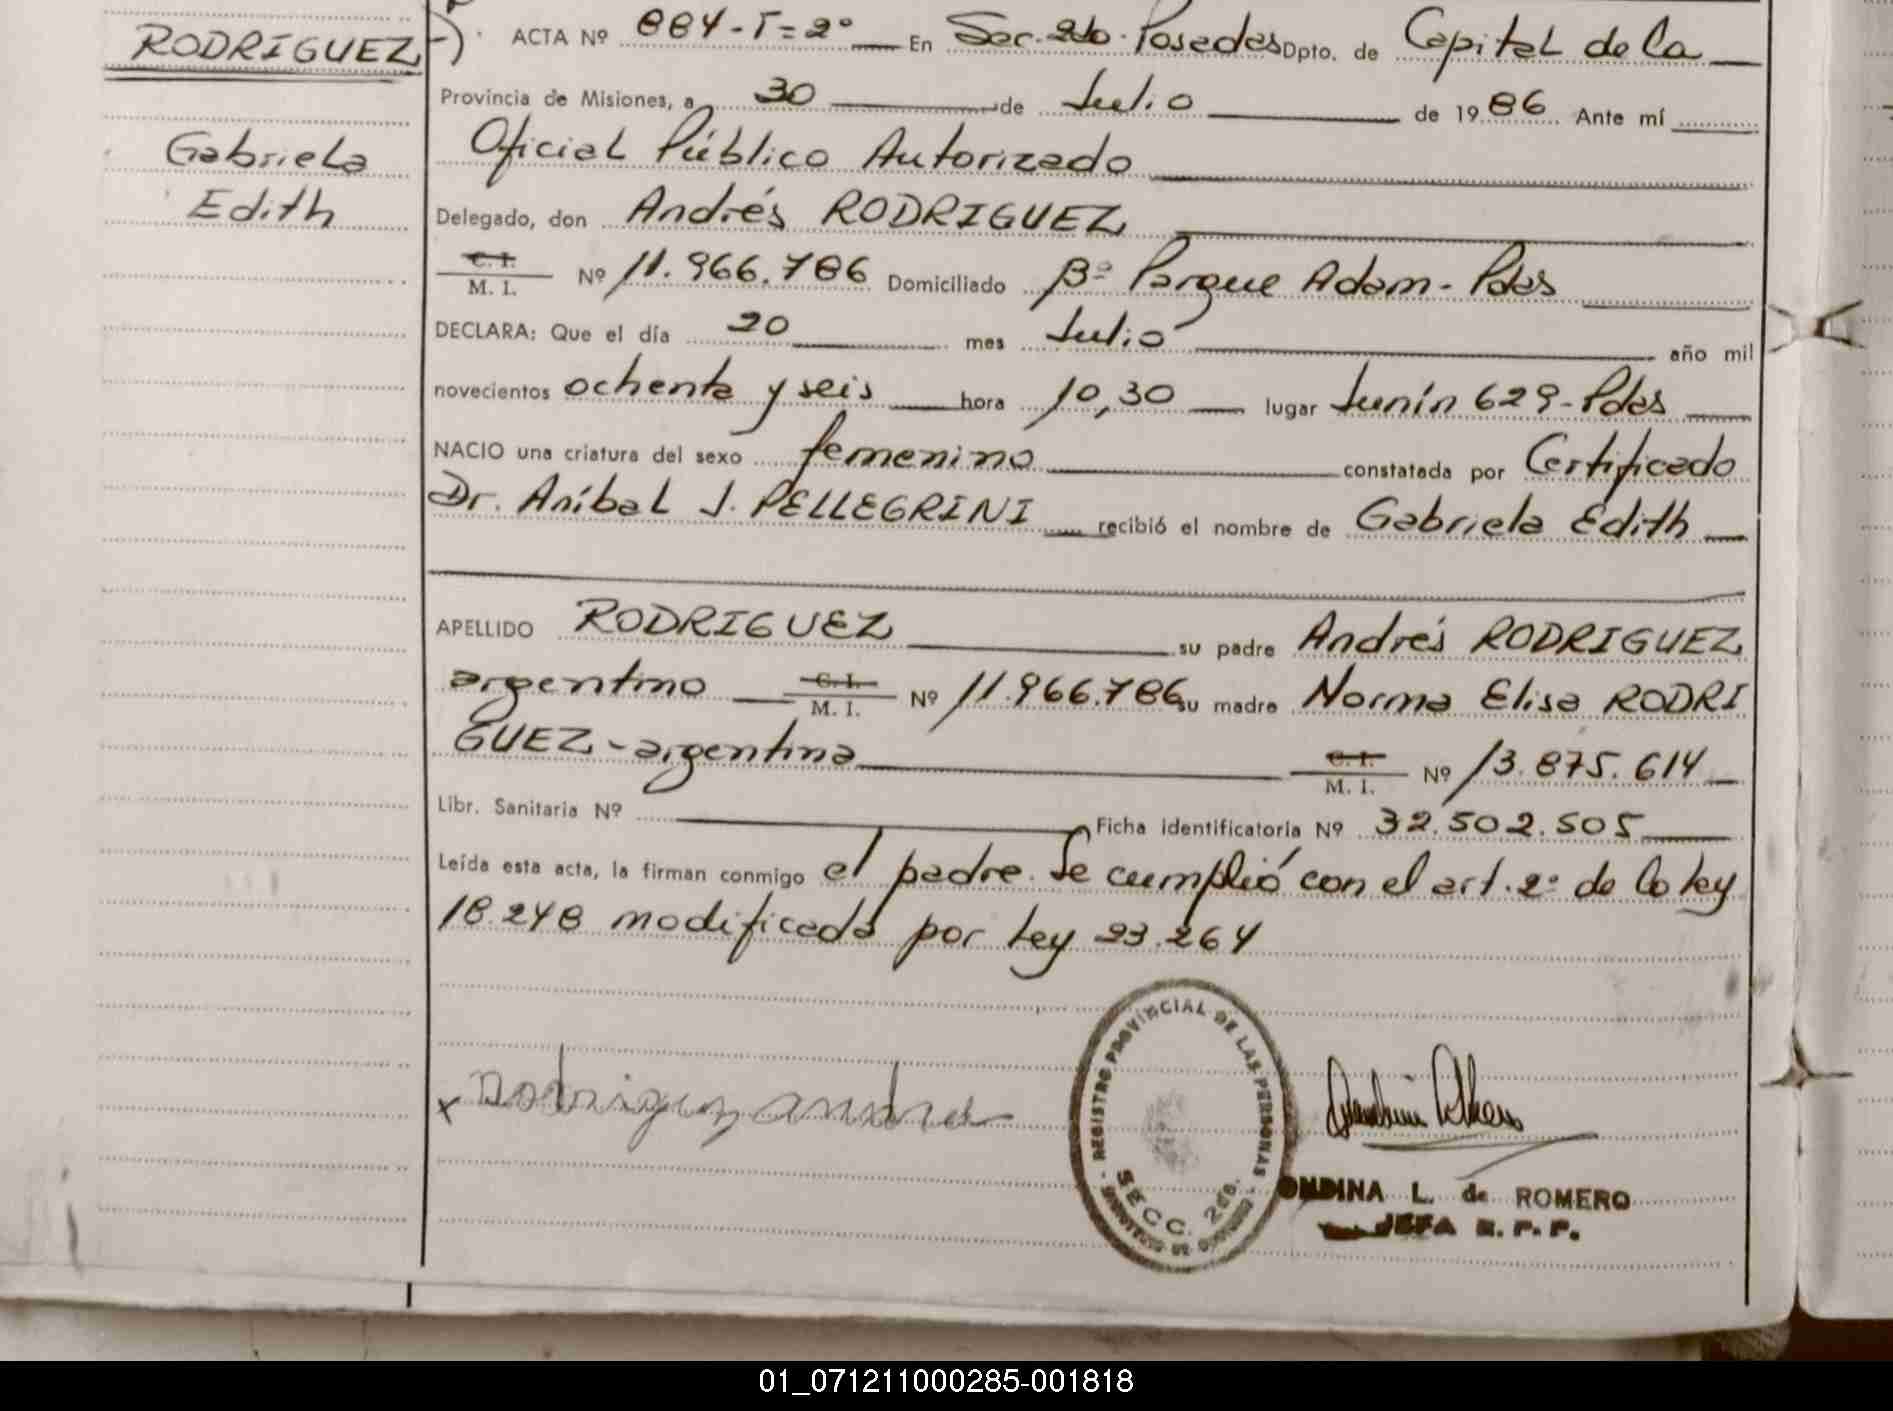 RODRIGUEZ
Gabriela
Edith
ACTA Nº 884-T=2º En Sec. 2da. Posadas Dpto. de Capital de la
Provincia de Misiones, a 30 de Julio de 1986 Ante mí
Oficial Público Autorizado
Delegado, don Andrés RODRIGUEZ
C. I.
M. I. Nº 11.966.786 Domiciliado Bº Parque Adam - Pdas
DECLARA: Que el día 20 mes Julio año mil
novecientos ochenta y seis hora 10,30 lugar Junín 629-Pdas
NACIO una criatura del sexo femenino constatada por Certificado
Dr. Aníbal J. PELLEGRINI recibió el nombre de Gabriela Edith
APELLIDO RODRIGUEZ su padre Andrés RODRIGUEZ
argentino C. I. M. I. Nº 11.966.786 su madre Norma Elisa RODRI
GUEZ-argentina C. I. M. I. Nº 13.875.614
Libr. Sanitaria Nº Ficha identificatoria Nº 32.502.505
Leída esta acta, la firman conmigo el padre. Se cumplió con el art. 2º de la ley
18.248 modificada por Ley 23.264
x Rodriguez andres
REGISTRO PROVINCIAL DE LAS PERSONAS
SECC. 2da.
ONDINA L. de ROMERO
JEFA R. P. P.
01_071211000285-001818